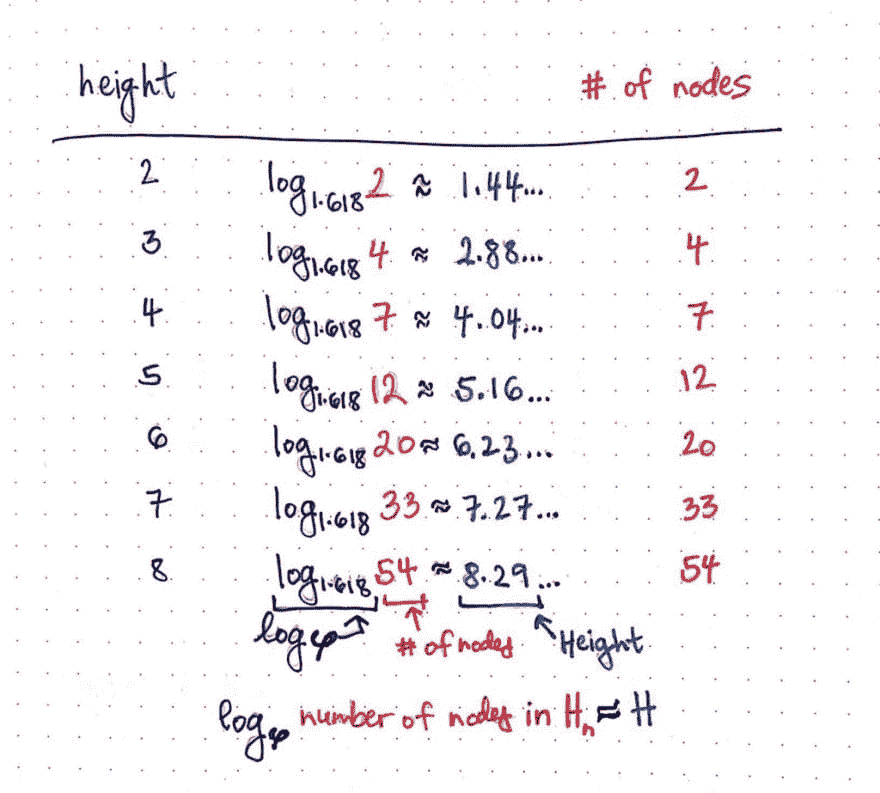 height # of nodes
2 log₁.₆₁₈ 2 ≈ 1.44... 2
3 log₁.₆₁₈ 4 ≈ 2.88... 4
4 log₁.₆₁₈ 7 ≈ 4.04... 7
5 log₁.₆₁₈ 12 ≈ 5.16... 12
6 log₁.₆₁₈ 20 ≈ 6.23... 20
7 log₁.₆₁₈ 33 ≈ 7.27... 33
8 log₁.₆₁₈ 54 ≈ 8.29... 54
logφ # of nodes Height
logφ number of nodes in Hₙ ≈ H